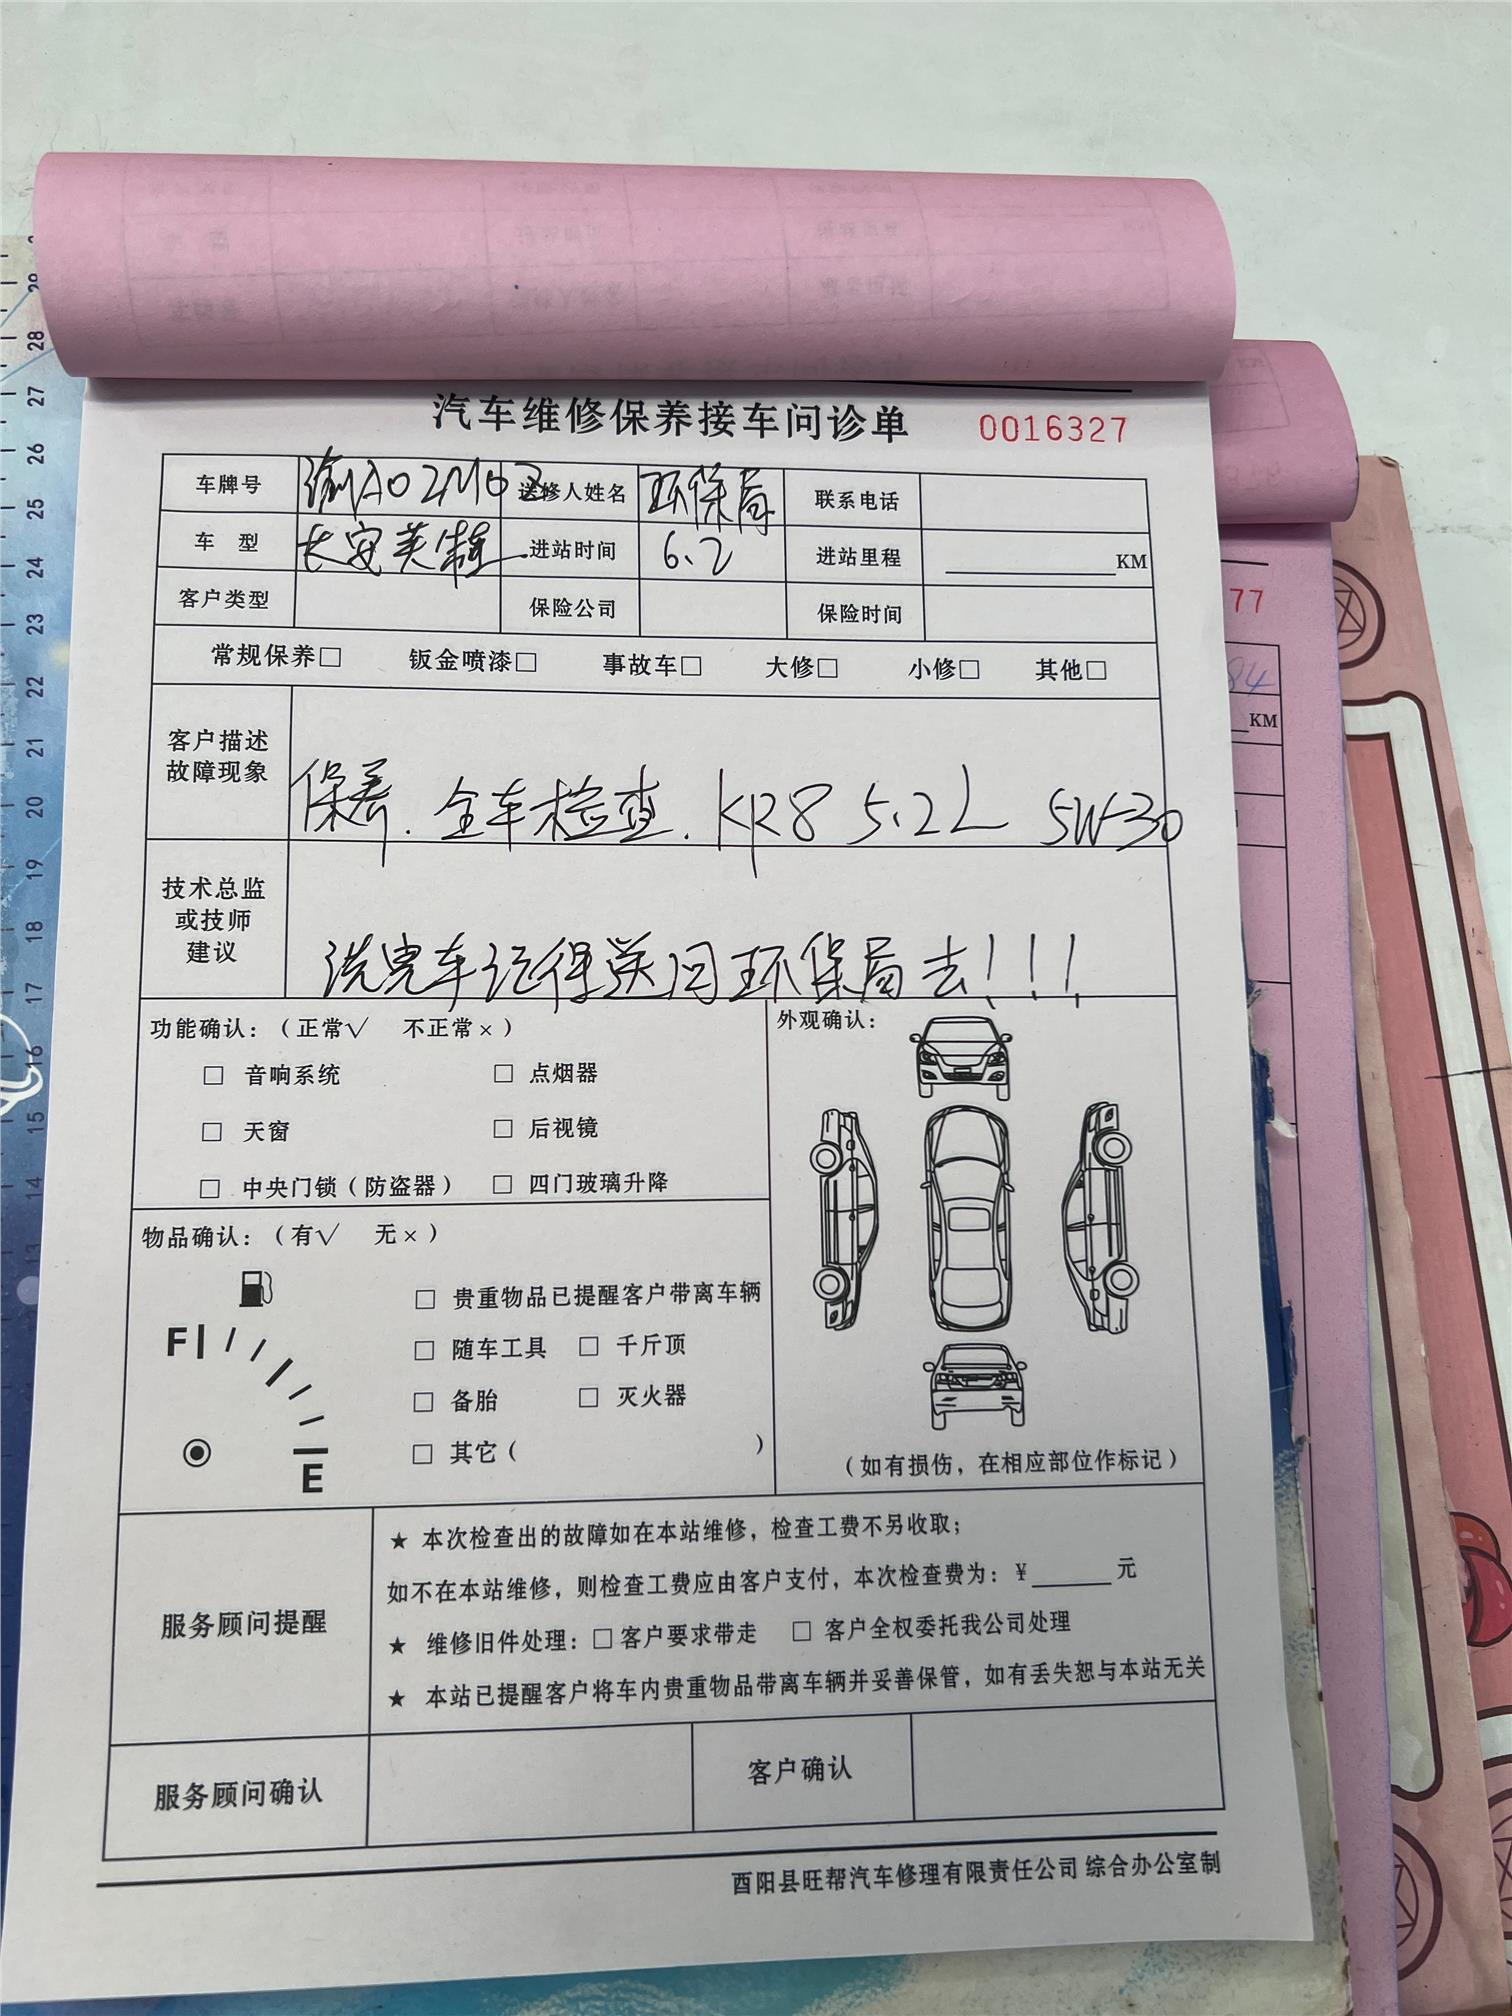 汽车维修保养接车问诊单 0016327
车牌号 渝A02M03 送修人姓名 环保局 联系电话
车 型 长安 进站时间 6.2 进站里程 KM
客户类型 保险公司 保险时间
常规保养□ 钣金喷漆□ 事故车□ 大修□ 小修□ 其他□
客户描述
故障现象
保养. 全车检查. KR8 5.2L 5W-30
技术总监
或技师
建议
洗完车记得送回环保局去!!!
功能确认:(正常√ 不正常×)
□ 音响系统 □ 点烟器
□ 天窗 □ 后视镜
□ 中央门锁(防盗器) □ 四门玻璃升降
外观确认:
(如有损伤,在相应部位作标记)
物品确认:(有√ 无×)
F
E
□ 贵重物品已提醒客户带离车辆
□ 随车工具 □ 千斤顶
□ 备胎 □ 灭火器
□ 其它( )
服务顾问提醒
★ 本次检查出的故障如在本站维修,检查工费不另收取;
如不在本站维修,则检查工费应由客户支付,本次检查费为:¥______元
★ 维修旧件处理:□客户要求带走 □ 客户全权委托我公司处理
★ 本站已提醒客户将车内贵重物品带离车辆并妥善保管,如有丢失恕与本站无关
服务顾问确认 客户确认
酉阳县旺帮汽车修理有限责任公司 综合办公室制
77
84
KM
28
27
26
25
24
23
22
21
20
19
18
17
16
15
14
13